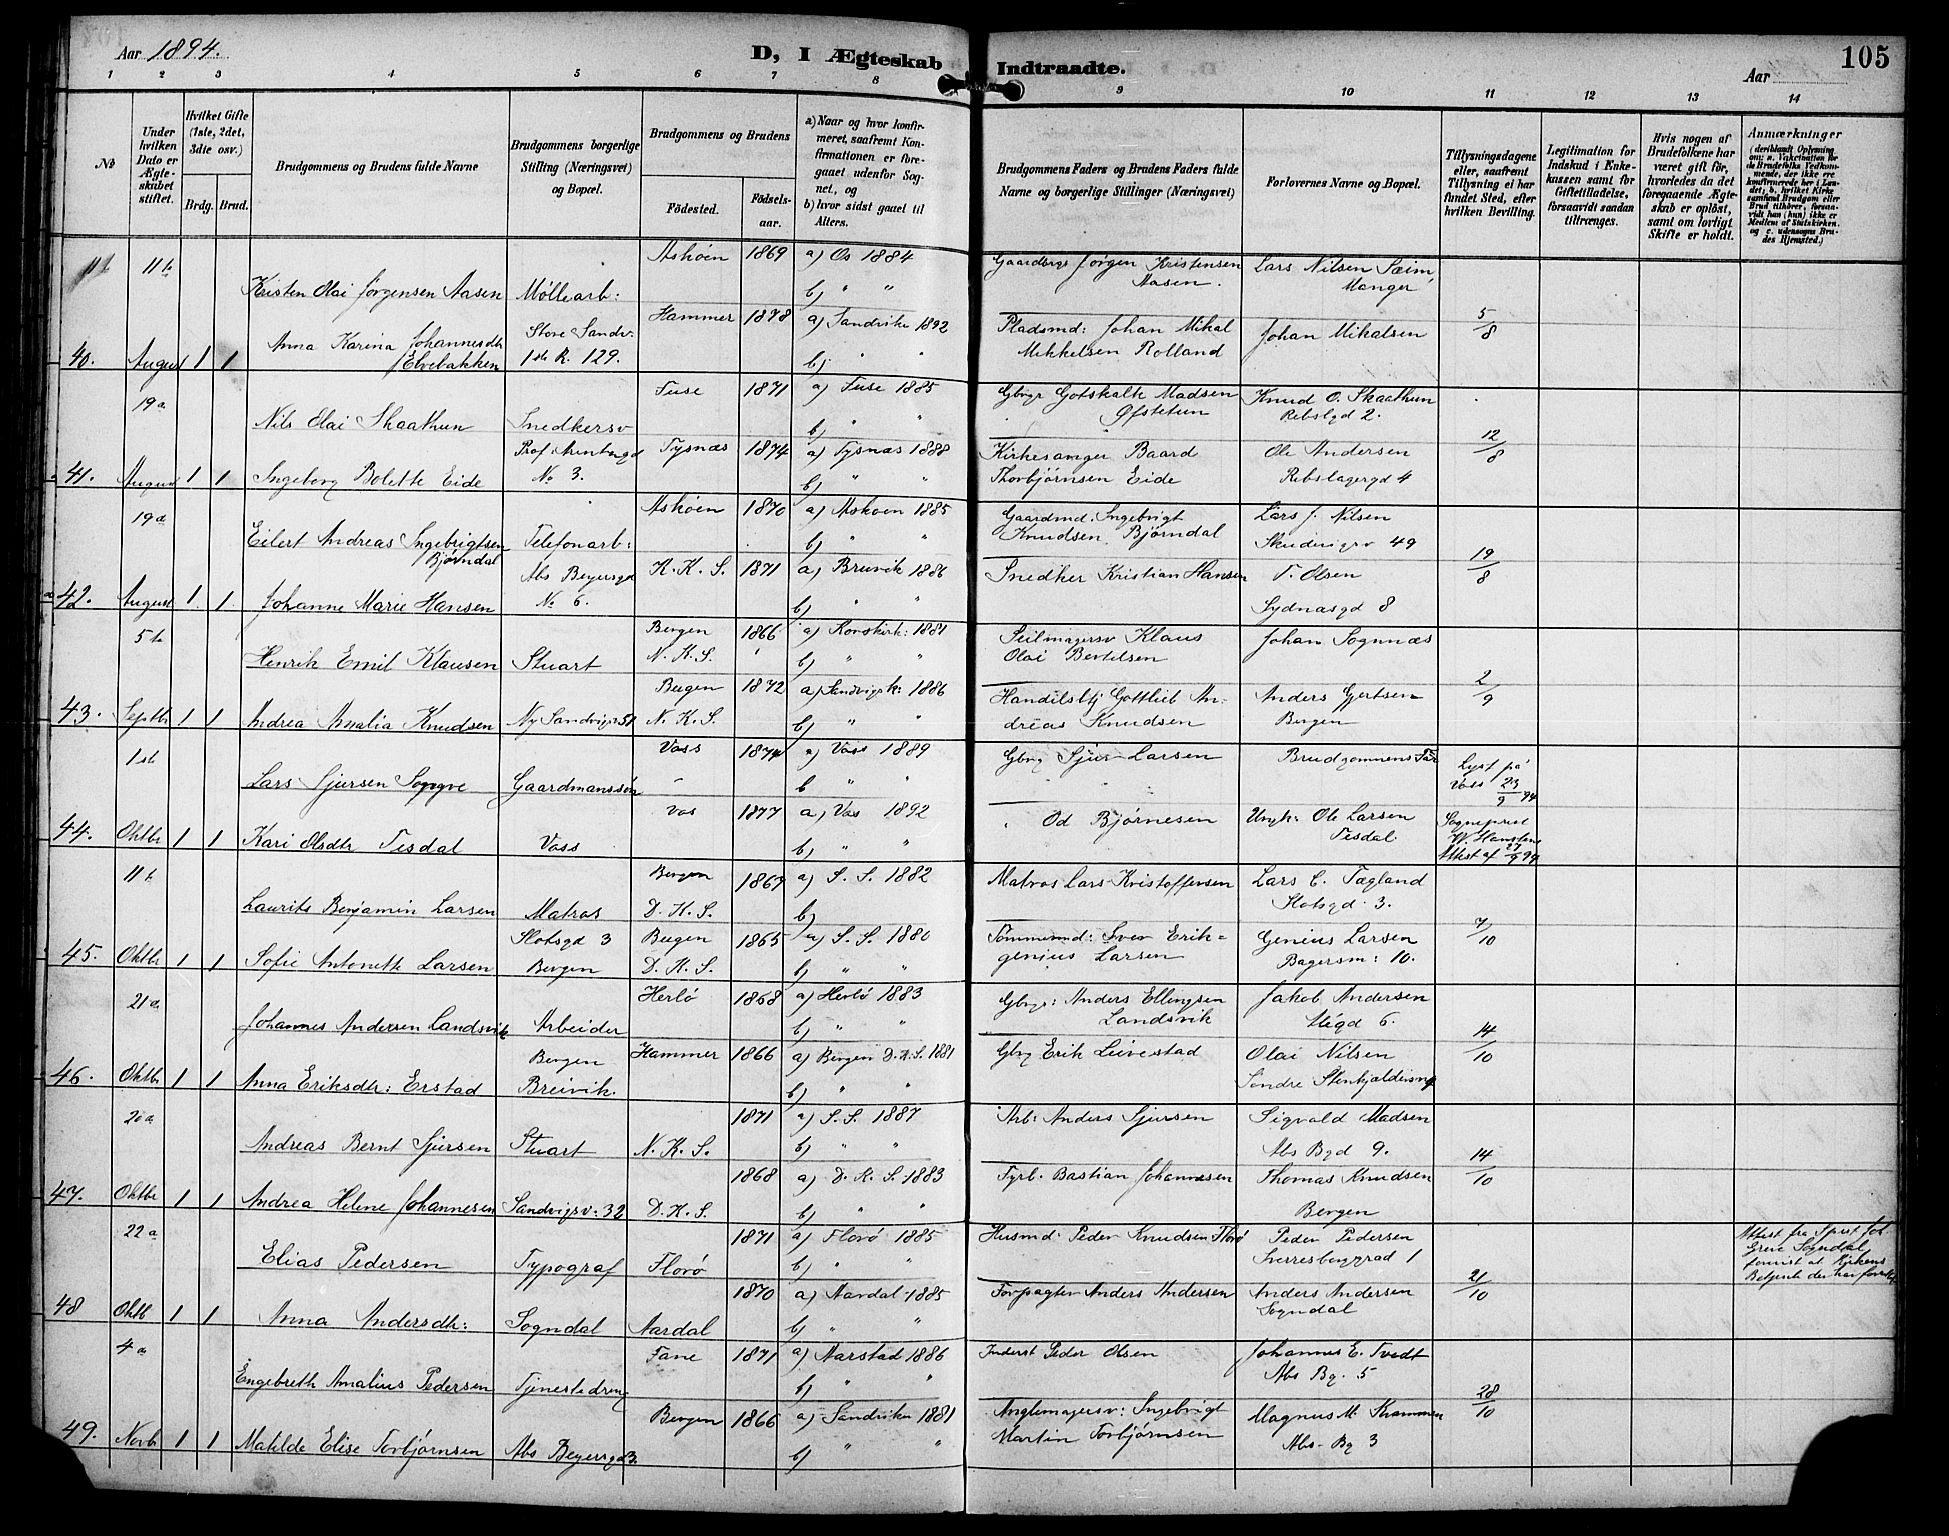 Aar 1894.
D, I Ægteskab Indtraadte.
Aar
105
1 2 3 4 5 6 7 8 9 10 11 12 13 14
No
Under hvilken Dato er Ægteskabet stiftet.
Hvilket Gifte (1ste, 2det, 3die osv.)
Brdg. Brud.
Brudgommens og Brudens fulde Navne
Brudgommens borgerlige Stilling (Næringsvei) og Bopæl.
Brudgommens og Brudens
Födested.
Födselsaar.
a) Naar og hvor konfirmeret, saafremt Konfirmationen er foregaaet udenfor Sognet, og
b) hvor sidst gaaet til Alters.
Brudgommens Faders og Brudens Faders fulde Navne og borgerlige Stillinger (Næringsvei)
Forlovernes Navne og Bopæl.
Tillysningsdagene eller, saafremt Tillysning ei har fundet Sted, efter hvilken Bevilling.
Legitimation for Indskud i Enkekassen samt for Giftetilladelse, forsaavidt saadan tiltrænges.
Hvis nogen af Brudefolkene har været gift för, hvorledes da det foregaaende Ægteskab er oplöst, samt om lovligt Skifte er holdt.
Anmærkninger (deriblandt Oplysning om: a. Vakcination for de Brudefolks Vedkommende, der ikke ere konfirmerede her i Landet; b. hvilket Kirkesamfund Brudgom eller Brud tilhörer, forsaavidt han (hun) ikke er Medlem af Statskirken, og c. udensogns Brudes Hjemsted.)
11te Askøen 1869 a) Os 1884 Gaardbrgr Jørgen Kristensen Lars Nilsen Sæim
Kristen Olai Jørgensen Aasen Møllearb: b) " " Aasen. Manger
Hammer 1878 a) Sandviken 1892 Pladsmd: Johan Mikal Johan Mikalsen 5/8
Anna Karina Johannesdtr Store Sandv. Mikkelsen Rolland
40. August 1 1 Elvebakken 1ste R. 129. b)
19a Fuse 1871 a) Fuse 1885 Gbrgr Gotskalk Madsen Knud O. Skaathun
Nils Olai Skaathun Snedkersv b) " " Øfstetun Rebslgd 2.
Tysnæs 1874 a) Tysnæs 1888 Kirkesanger Baard Ole Andersen 12/8
41. August 1 1 Ingeborg Bolette Eide No 3. b) " " Thorbjørnsen Eide Rebslagergd 4
19de Askøen 1870 a) Askøen 1885 Gaardmd: Ingebrigt Lars J. Nilsen
Eilert Andreas Ingebrigtsen Telefonarb: b) " " Knudsen Bjørndal 49
Bjørndal Abs Beyersgd K. K. S. 1871 a) Bruvik 1886 Snedker Kristian Hansen T. Olsen 19/8
42. August 1. 1. Johanne Marie Hansen No 6. b) " " Sydnæsgd 8
5te Bergen 1866 a) Korskirk: 1881 Seilmagersv Klaus Johan Sognnæs
Henrik Emil Klausen Stuart N. K. S. b) " " Olai Bertelsen
Bergen 1872 a) Sandvigsk: 1886 Handelsbtj Gottlieb An- Anders Gjertsen 2/9
43. Septbr 1 1 Andrea Amalia Knudsen Ny Sandvigsv 51 N. K. S. b) " " dreas Knudsen Bergen
1ste Voss 1874 a) Voss 1889 Gbrg Sjur Larsen Brudgommens Far Lyst på
Lars Sjursen Gaardmanssøn b " " Voss 23/9 94
Vos 1877 a) Vos 1892 Od Bjørnesen Ungk: Ole Larsen Sogneprest
44. Oktbr 1 1 Kari Olsdtr Tesdal Voss b) " " Tesdal Attest af 27/9 94
11te Bergen 1867 a) S. S. 1882 Matros Lars Kristoffersen Lars C. Tægland
Laurits Benjamin Larsen Matros D. K. S. b) Slotsgd 3.
Slotsgd 3 Bergen 1865 a) S. S. 1880 Tømmermd: Iver Erik- Genius Larsen 7/10
45. Oktbr 1 1 Sofie Antonette Larsen Bergen D. K. S. b) " " genius Larsen Bagersm: 10.
21de Herlø 1868 a) Herlö 1883 Gbrgr: Anders Ellingsen Jakob Andersen
Johannes Andersen Landsvik Arbeider b) " " Landsvik 6.
Bergen Hammer 1866 a) Bergen D. K. S. 1881 Gbrg Erik Leivestad Olai Nilsen 14/10
46. Oktbr 1 1 Anna Eriksdtr: Erstad Breivik. b) " " Søndre
20a 1871 a) S. S. 1887 Arb: Anders Sjursen Sigvald Madsen
Andreas Bernt Sjursen Stuart N. K. S. b) " " Abs Bgd 9.
1868 a) D. K. S. 1883 Fyrb. Bastian Johannesen Thomas Knudsen 14/10
47. Oktbr 1 1 Andrea Helene Johannesen Sandvigsv: 32 D. K. S. b) " " Bergen
22a 1871 a) Florø 1885 Husmd: Peder Knudsen Florø Peder Pedersen Attest fra Sprst
Elias Pedersen Typograf Florø b) " " Sverresborggad 1 Sogndal
1870 a) Aardal 1885 Forpagter Anders Andersen Anders Andersen 21/10
48 Oktb 1 1 Anna Andersdtr: Sogndal Aardal b) " " Sogndal
4a Fane 1871 a) Aarstad 1886 Inderst Peder Olsen Johannes E. Tvedt
Engebreth Amalius Pedersen Tjenestedreng b) " " Abs Bg. 5
Bergen 1866 a) Sandviken 1881 Anglemagersv: Ingebrigt Magnus M. 28/10
49. Novb 1 1 Matilde Elise Torbjørnsen Abs Beyersgd 3. b) " " Martin Torbjørnsen Abs. Bg 3